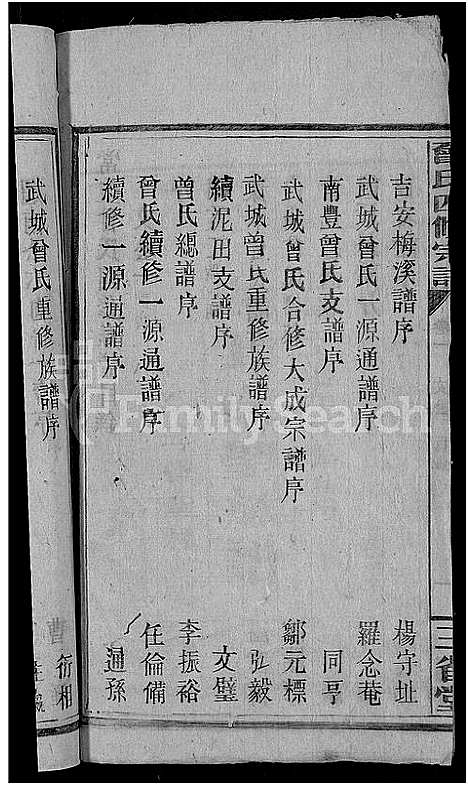 曾氏四修宗譜
三省堂
吉安梅溪譜序 楊守址
武城曾氏一源通譜序 羅念菴
南豐曾氏支譜序 同亨
武城曾氏合修大成宗譜序 鄒元標
武城曾氏重修族譜序 弘毅
續泥田支譜序 文璧
曾氏總譜序 李振裕
曾氏續修一源通譜序 任倫備
續修一源通譜序 遜孫
武城曾氏重修族譜序 衍相
FamilySearch